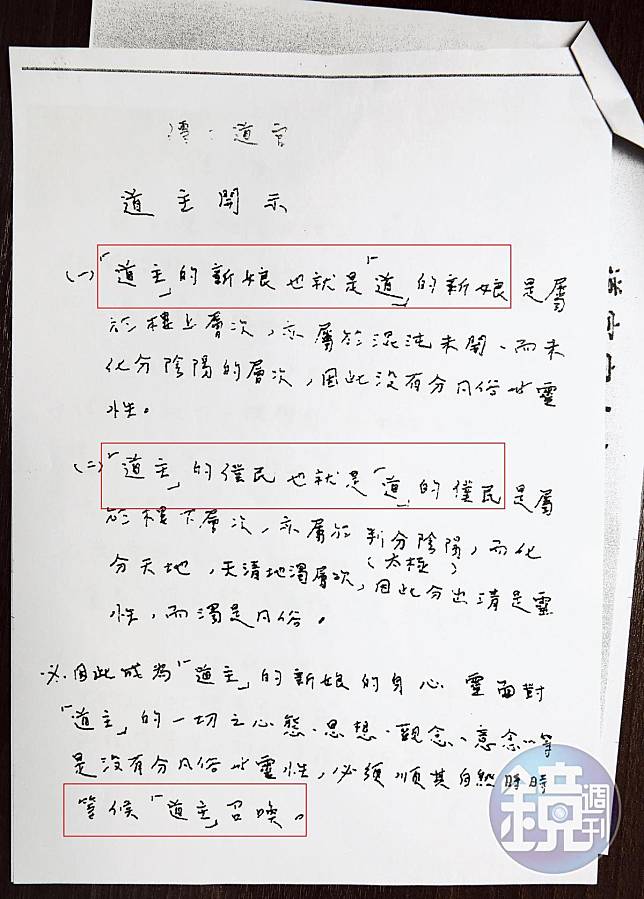 澪：道官
道主開示
(一)「道主」的新娘也就是「道」的新娘是屬
於樓上層次，亦屬於混沌未開、而未
化分陰陽的層次，因此沒有分凡俗與靈
性。
(二)「道主」的僕民也就是「道」的僕民是屬
於樓下層次，亦屬於判分陰陽，而化
(太極)
分天地，天清地濁層次，因此分出清是靈
性，而濁是凡俗。
※因此成為「道主」的新娘的身心靈面對
「道主」的一切之心態、思想、觀念、意念…等
是沒有分凡俗與靈性，必須順其自然時時
等候「道主」召喚。
鏡週刊